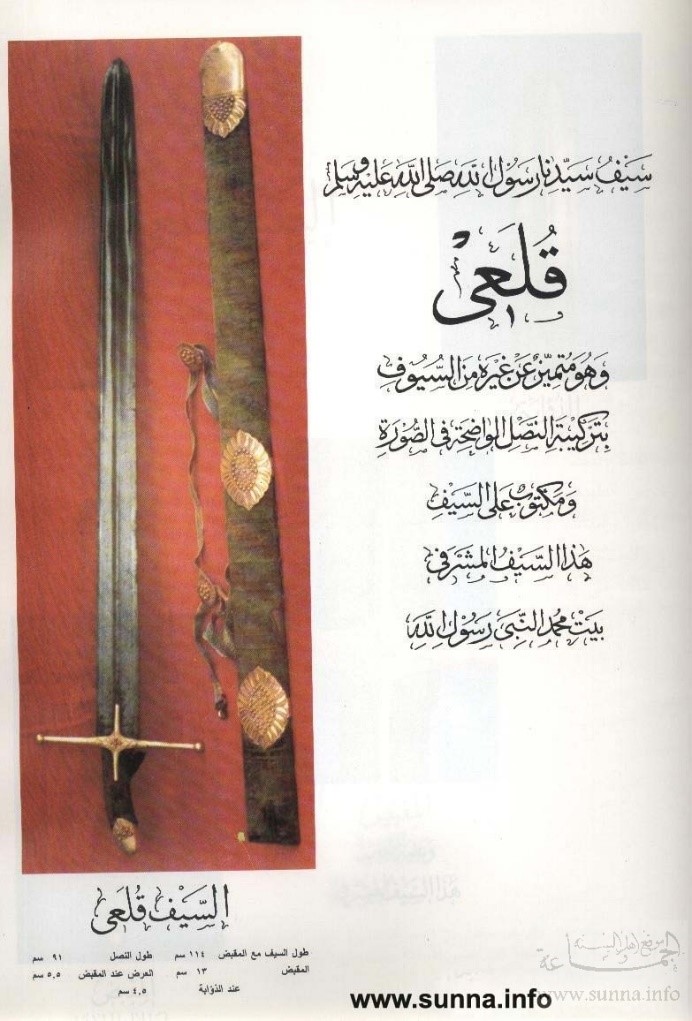 سَيْفُ سَيِّدِنَا رَسُولِ اللهِ صَلَّى اللهُ عَلَيْهِ وَسَلَّم
قُلَعِى
وَهُوَ مُتَمَيِّزٌ عَنْ غَيْرِهِ مِنَ السُّيُوفِ
بِتَرْكِيبَةِ النَّصْلِ الوَاضِحَةِ فِى الصُّورَةِ
وَمَكْتُوبٌ عَلَى السَّيْفِ
هَذَا السَّيْفُ المَشْرَفِى
بَيْتِ مُحَمَّدٍ النَّبِىِّ رَسُولِ اللهِ
السَّيْف قُلَعِى
طول السيف مع المقبض ١١٤ سم طول النصل ٩١ سم
المقبض ١٣ سم العرض عند المقبض ٥,٥ سم
عند الذؤابة ٤,٥ سم
موقع أهل السنة
والجماعة
www.sunna.info
www.sunna.info